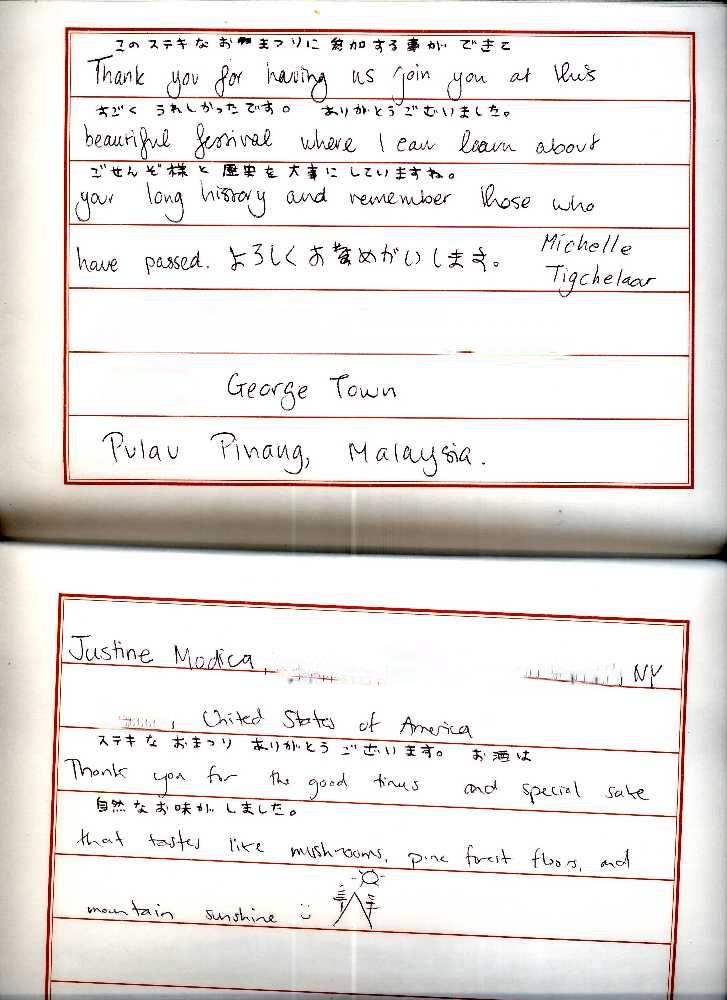 このステキなおまつりに参加する事ができて
Thank you for having us join you at this
すごくうれしかったです。ありがとうございました。
beautiful festival where I can learn about
ごせんぞ様と歴史を大事にしていますね。
your long history and remember those who
have passed. よろしくおねがいします。 Michelle
Tigchelaar
George Town
Pulau Pinang, Malaysia.
Justine Modica, NY
, United States of America
ステキなおまつりありがとうございます。お酒は
Thank you for the good times and special sake
自然なお味がしました。
that tastes like mushrooms, pine forest floors, and
mountain sunshine